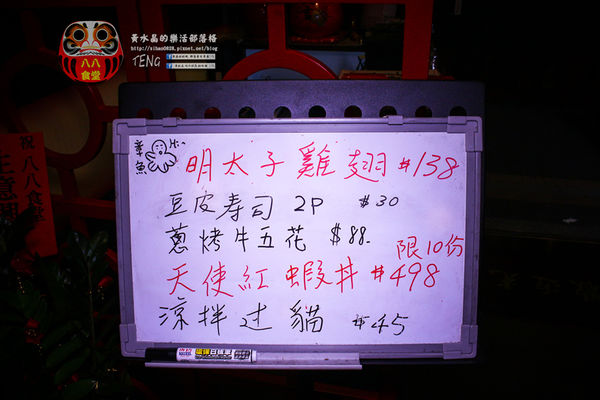 黃水晶的樂活部落格
http://sihao0828.pixnet.net/blog
TENG
八八
食堂
祝 八八食堂
生意
章魚
Hi~
明太子雞翅 $138
豆皮寿司 2P $30
蔥烤牛五花 $88.
限10份
天使紅蝦丼 $498
涼拌过貓 $45